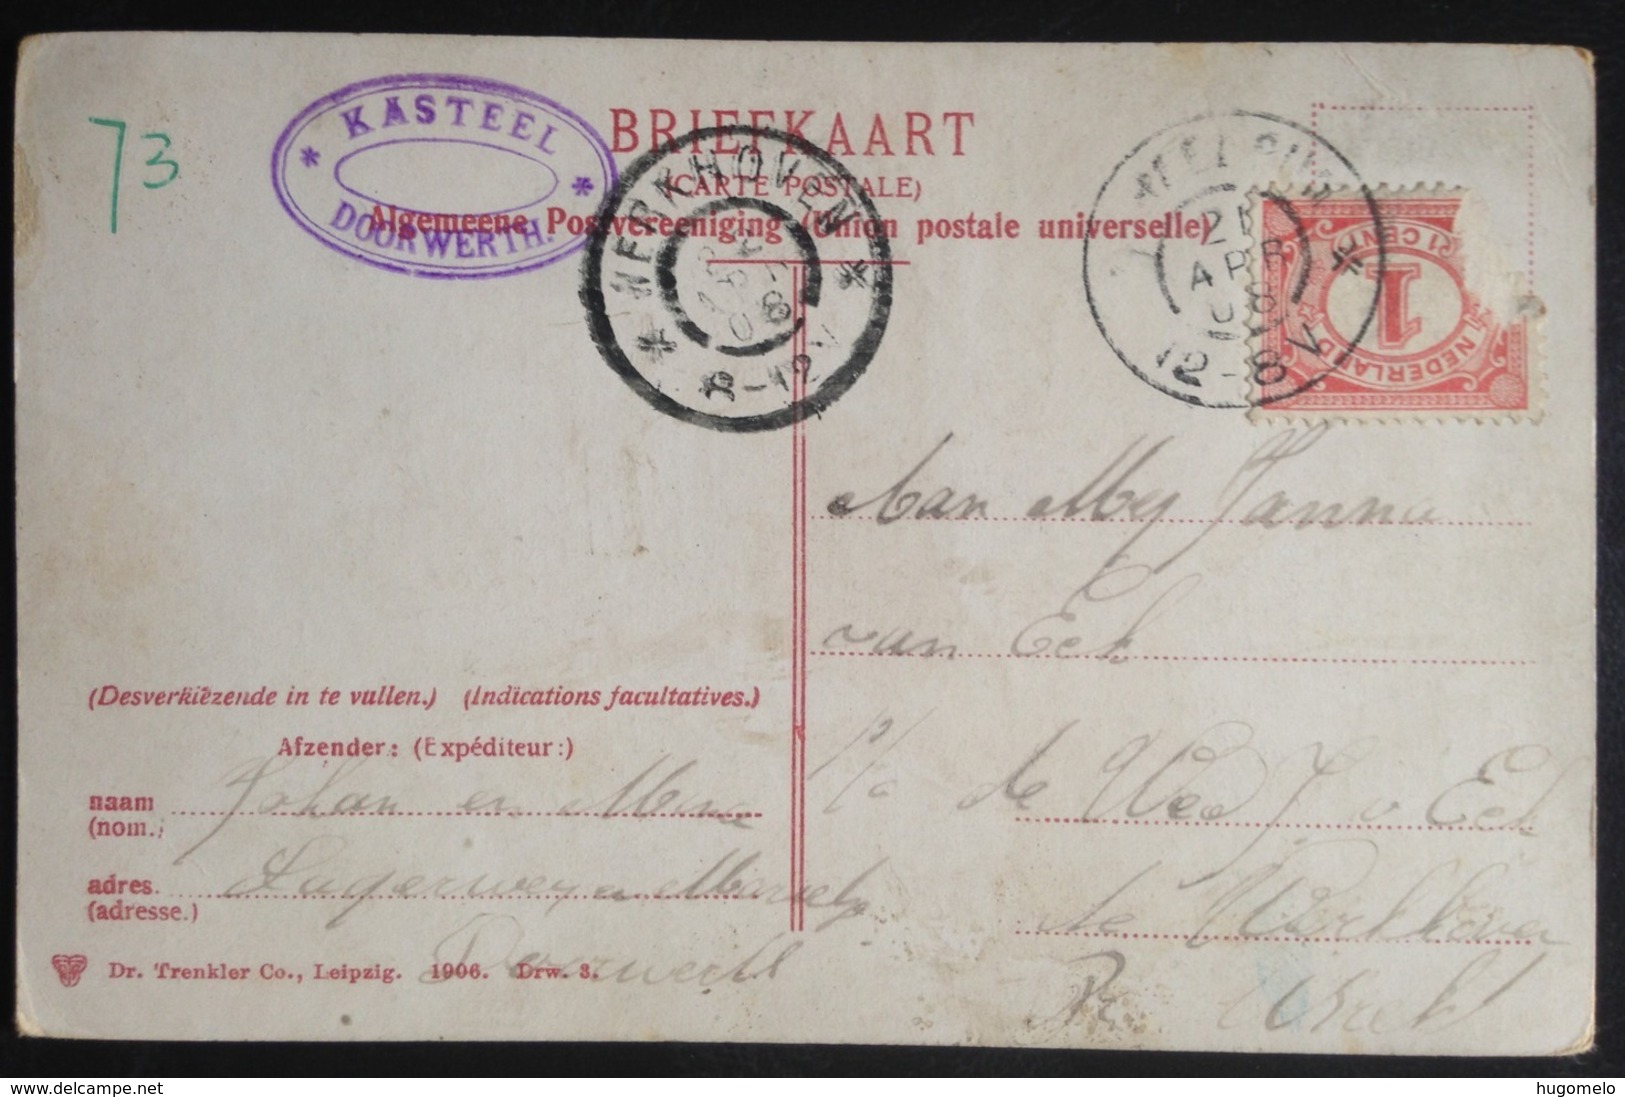 73
KASTEEL
DOORWERTH.
BRIEFKAART
(CARTE POSTALE)
Algemeene Postvereeniging (Union postale universelle)
WERKHOVEN
8-12 V
APR
12-8 V
1 CENT
1
NEDERLAND
Aan Mej Janna
van Eek
p/a de Wed J v Eek
te Werkhoven
(Desverkiezende in te vullen.) (Indications facultatives.)
Afzender: (Expéditeur:)
naam Johan en
(nom.)
adres.
(adresse.)
Doorwerth
Dr. Trenkler Co., Leipzig. 1906. Drw. 3.
delcampe.net
hugomelo